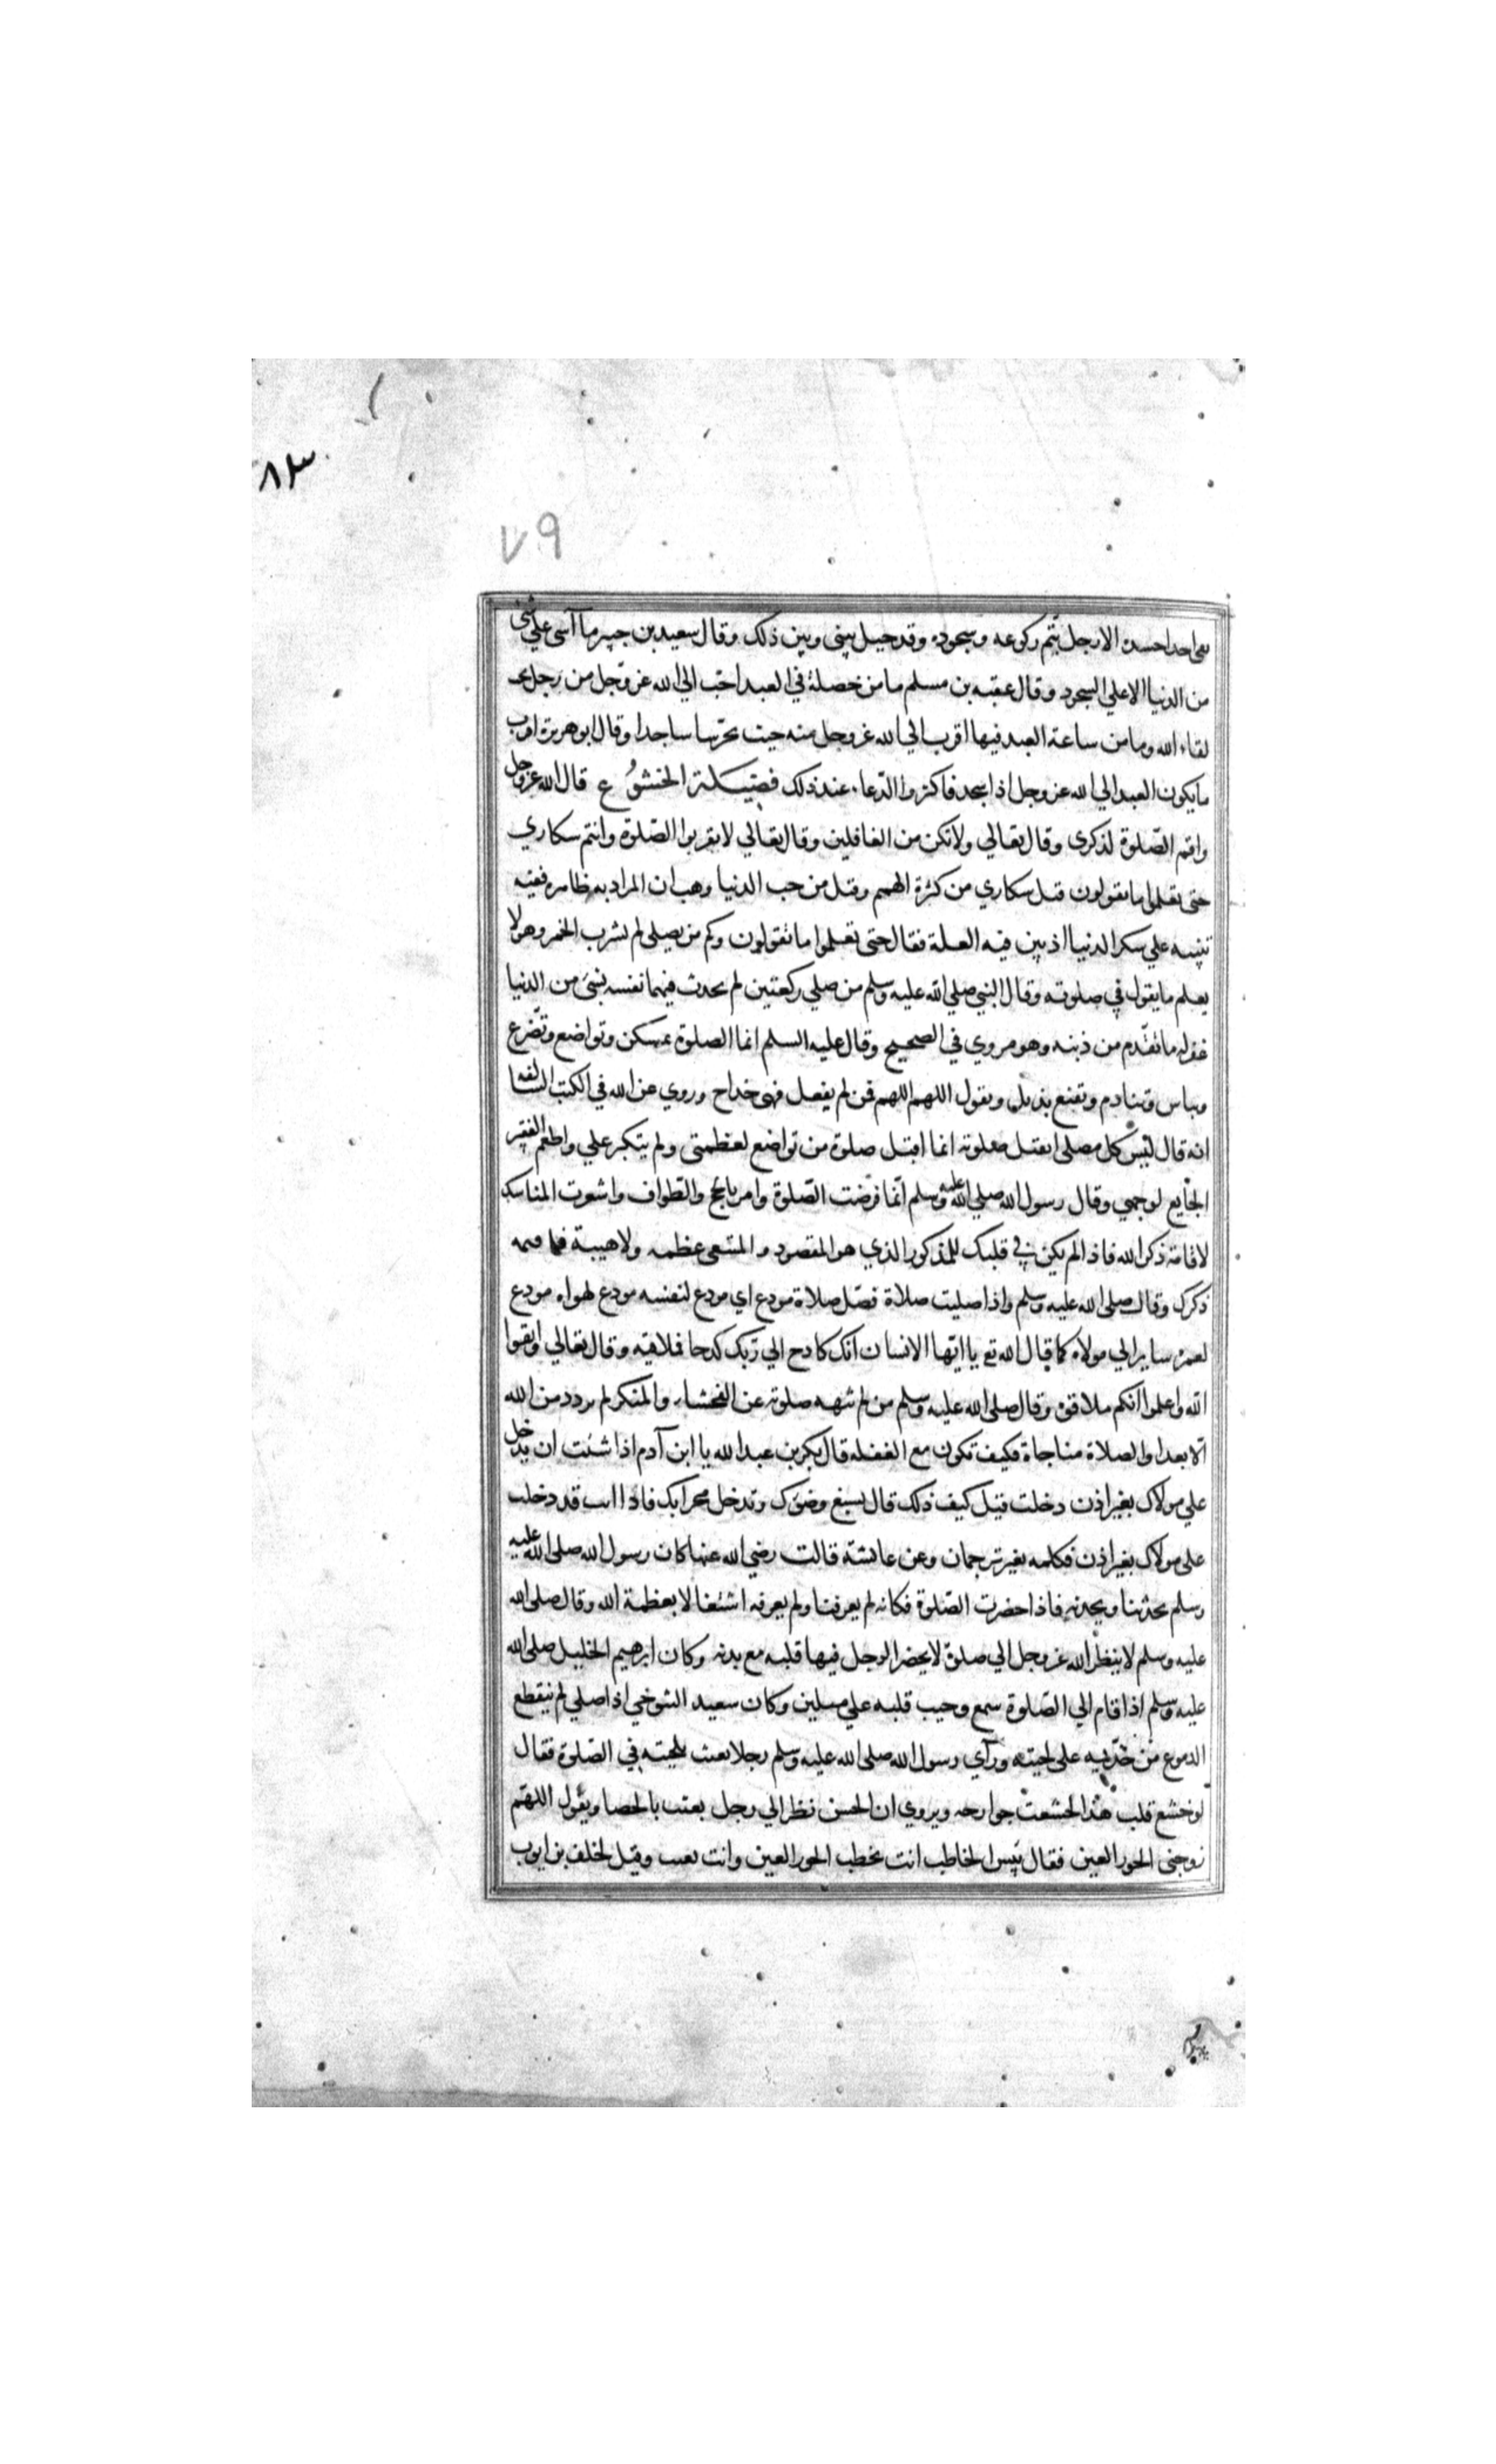 ٨٣
٧٩
بقى احد احسده الا رجل يتم ركوعه وسجوده وقد حيل بيني وبين ذلك وقال سعيد بن جبير ما آسى علي شئ
من الدنيا الا علي السجود وقال عقبه بن مسلم ما من خصلة في العبد احب الي الله عز وجل من رجل يحب
لقاء الله وما من ساعة العبد فيها اقرب الي الله عز وجل منه حيث يخر بها ساجدا وقال ابو هريرة اقرب
ما يكون العبد الي الله عز وجل اذا سجد فاكثروا الدعاء عند ذلك فضيلة الخشوع قال الله عز وجل
واقم الصّلوة لذكرى وقال تعالي ولا تكن من الغافلين وقال تعالي لا تقربوا الصّلوة وانتم سكاري
حتى تعلموا ما تقولون قيل سكاري من كثرة الهم وقيل من حب الدنيا وهب ان المراد به ظاهره ففيه
تنبيه علي سكر الدنيا اذ بين فيه العلة فقال حتى تعلموا ما تقولون وكم من يصلى لم يشرب الخمر وهو لا
يعلم ما يقول في صلوته وقال النبي صلي الله عليه وسلم من صلي ركعتين لم يحدث فيهما نفسه بشئ من الدنيا
غفر له ما تقدم من ذنبه وهو مروي في الصحيح وقال عليه السلم انما الصلوة تمسكن وتواضع وتضرع
وتباس وتنادم وتقنع يديك وتقول اللهم اللهم فمن لم يفعل فهى خداج وروي عن الله في الكتب السالفة
انه قال ليس كل مصلى اتقبل صلوته انما اقبل صلوة من تواضع لعظمتى ولم يتكبر علي واطعم الفقير
الجايع لوجهي وقال رسول الله صلي الله عليه وسلم انّما فرضت الصّلوة وامر بالحج والطواف واشعرت المناسك
لاقامة ذكر الله فاذا لم يكن في قلبك للمذكور الذي هو المقصود والمبتغى عظمه ولا هيبة فما قيمه
ذكرك وقال صلي الله عليه وسلم واذا صليت صلاة فصل صلاة مودع اي مودع لنفسه مودع لهواه مودع
لعمره ساير الي مولاه كما قال الله تع يا ايّها الانسان انك كادح الي ربك كدحا فملاقيه وقال تعالي واتقوا
الله واعلموا انكم ملاقوه وقال صلي الله عليه وسلم من لم تنهه صلوته عن الفحشاء والمنكر لم يزدد من الله
الا بعدا والصلاة مناجاة فكيف تكون مع الغفله قال بكر بن عبد الله يا ابن آدم اذا شئت ان تدخل
علي مولاك بغير اذن دخلت قيل كيف ذلك قال تسبغ وضوك وتدخل محرابك فاذا انت قد دخلت
علي مولاك بغير اذن فكلمه بغير ترجمان وعن عائشة قالت رضي الله عنها كان رسول الله صلي الله عليه
وسلم يحدثنا ويحدثه فاذا حضرت الصّلوة فكانه لم يعرفنا ولم يعرفه اشتغالا بعظمة الله وقال صلى الله
عليه وسلم لا ينظر الله عز وجل الي صلوة لا يحضر الرجل فيها قلبه مع بدنه وكان ابرهيم الخليل صلى الله
عليه وسلم اذا قام الي الصّلوة سمع وجيب قلبه علي ميلين وكان سعيد التنوخي اذا صلي لم ينقطع
الدموع من خدّيه على لحيته ورآي رسول الله صلي الله عليه وسلم رجلا يعبث بلحيته في الصّلوة فقال
لو خشع قلب هذا لخشعت جوارحه ويروي ان الحسن نظر الي رجل يعبث بالحصا ويقول اللهم
زوجنى الحور العين فقال بئس الخاطب انت تخطب الحور العين وانت تعبث وقيل لخلف بن ايوب